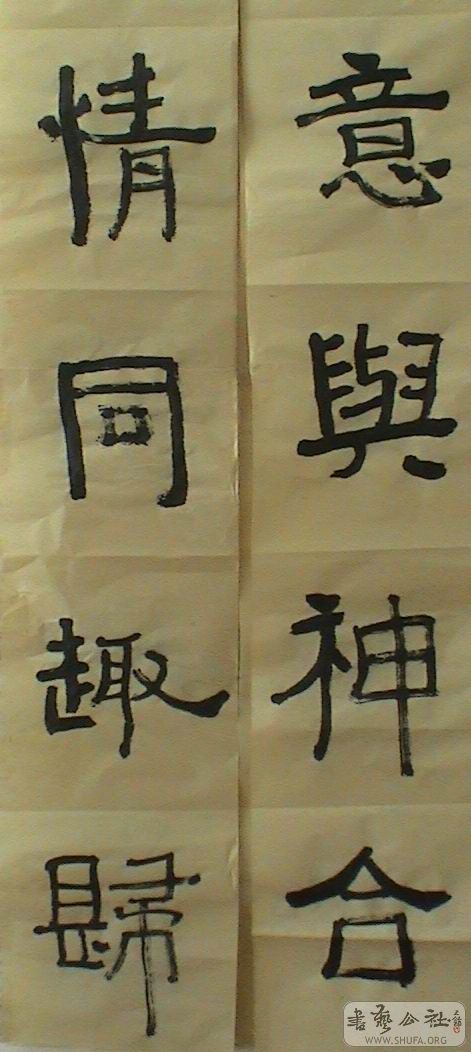 意與神合
情同趣歸
書藝公社
WWW.SHUFA.ORG